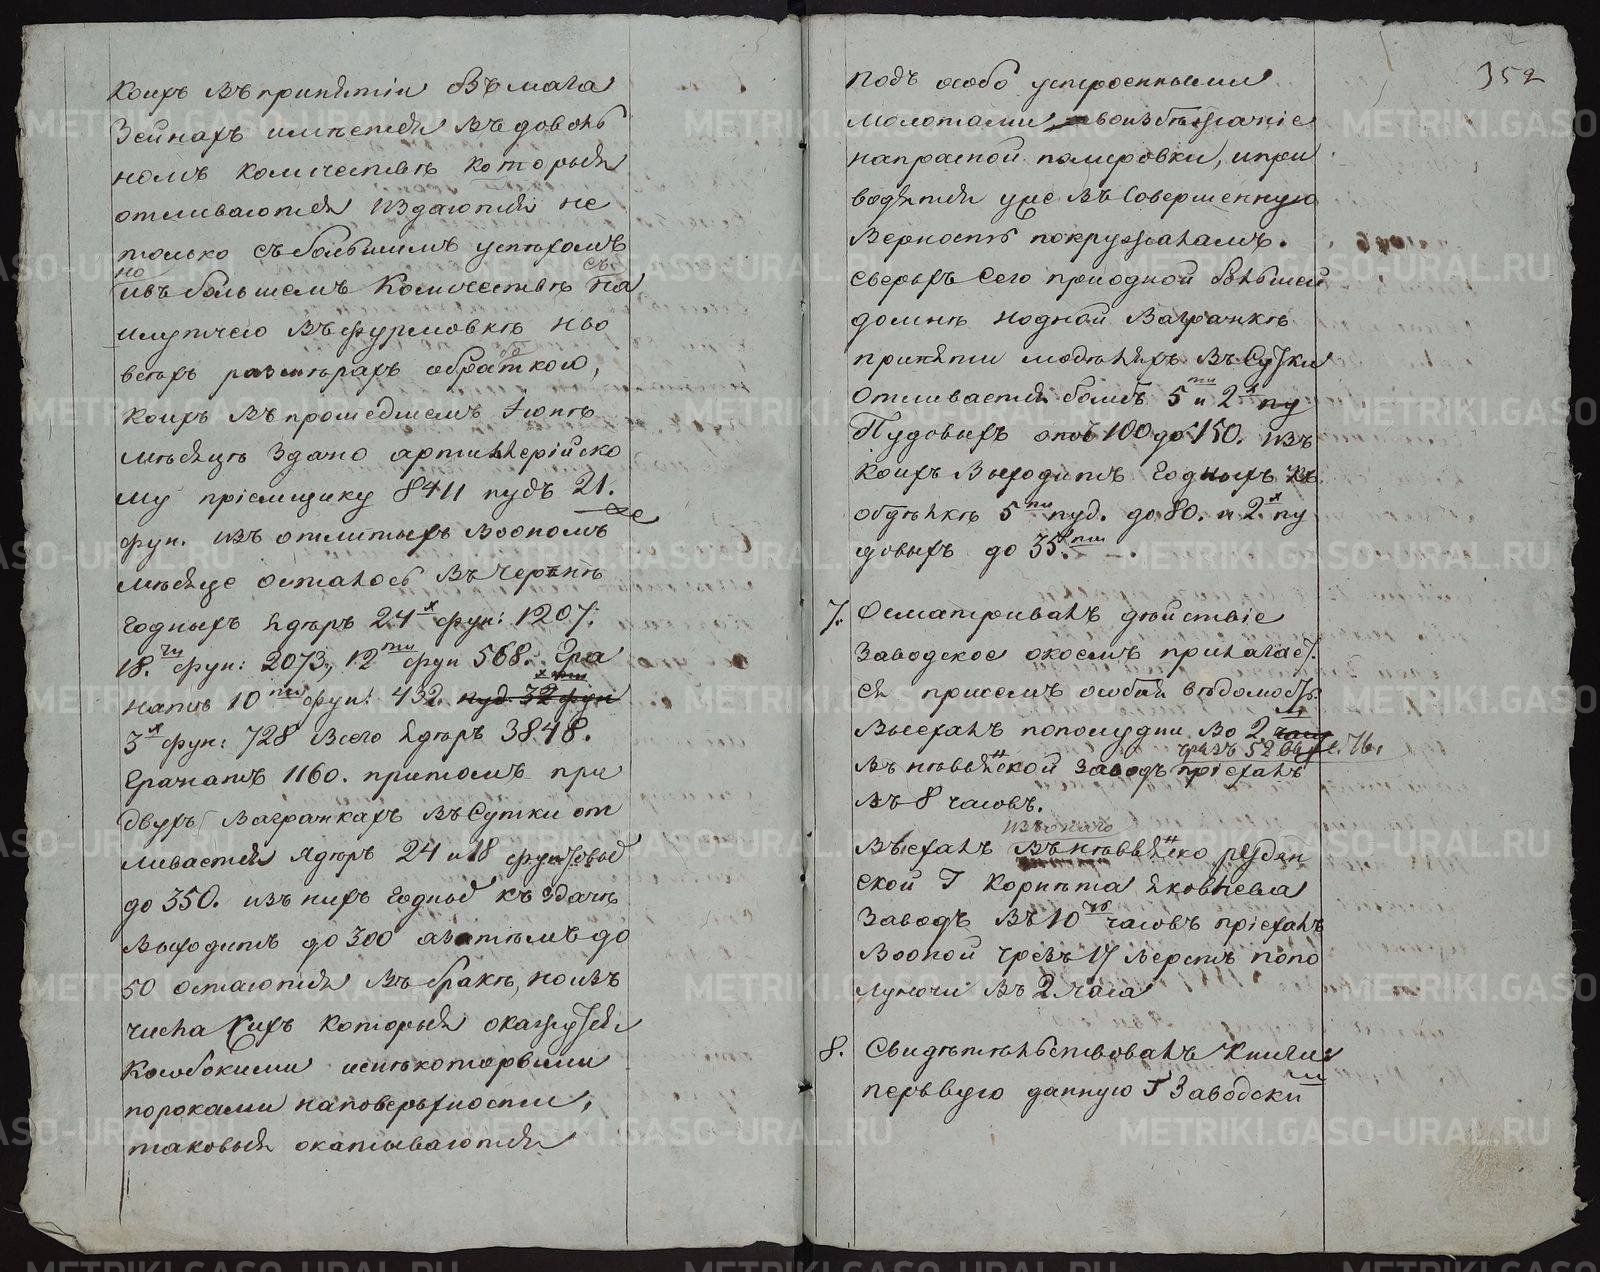 коихъ въ принятіи въ мага
зейнахъ имѣется въ доволь
номъ количествѣ которыя
отливаются издаются не
только съ большимъ успѣхомъ
но
ивъ большемъ количествѣ на
илутчею въ формовкѣ иво
всѣхъ размѣрахъ обраткою,
коихъ въ прошедшемъ іюнѣ
мѣсяцѣ здано артиллерійско
му пріемщику 8411 пудъ 21.
фун. изъ отлитыхъ воономъ
же
мѣсяце осталось въ черѣнѣ
годныхъ ядръ 24х фун: 1207.
18.ти фун: 2073, 12ти фун 568. гра
натъ 10ти фун: 432. пуд. 32 фун
3х фун: 728 всего ядръ 3848.
гранатъ 1160. притомъ при
двухъ вагранкахъ въ сутки от
ливается ядръ 24 и 18 фунтовыхъ
до 350. изъ нихъ годныхъ къ здачѣ
выходитъ до 300 азатѣмъ до
50 остаются въ бракѣ, ноизъ
числа сихъ которыя окажутся
кособокими инѣкоторыми
пороками наповерьхности,
таковыя окатываются
352
подъ особо устроенными
молотами, воизбѣжаніе
напрасной полировки, ипри
водятся уже въ совершенную
верность покружаламъ.
сверьхъ сего приодной большей
домнѣ иодной вагранкѣ
принятіи моделяхъ въ сутки
отливается бомбъ 5ти и 2х пу
пудовыхъ отъ 100 до 150. изъ
коихъ выходитъ годныхъ къ
отдѣлкѣ 5ти пуд. до 80. и 2х пу
довыхъ до 35.ти
7. Осматривалъ дѣйствіе
заводское окоемъ прилагает
ся присемъ особая вѣдомость.
Выехалъ пополудни во 2.м часу
чрезъ 52 вер. 76.
въ невьянской заводъ пріехалъ
въ 8 часовъ.
изъ онаго
Выехалъ въ невьянско рудян
ской Г Корнѣта Яковлева
заводъ въ 10ть часовъ пріехалъ
воопой чрезъ 17 верстъ попо
луночи въ 2 часа
8. Свидѣтельствовалъ книги:
перьвую данную Г Заводски
ми